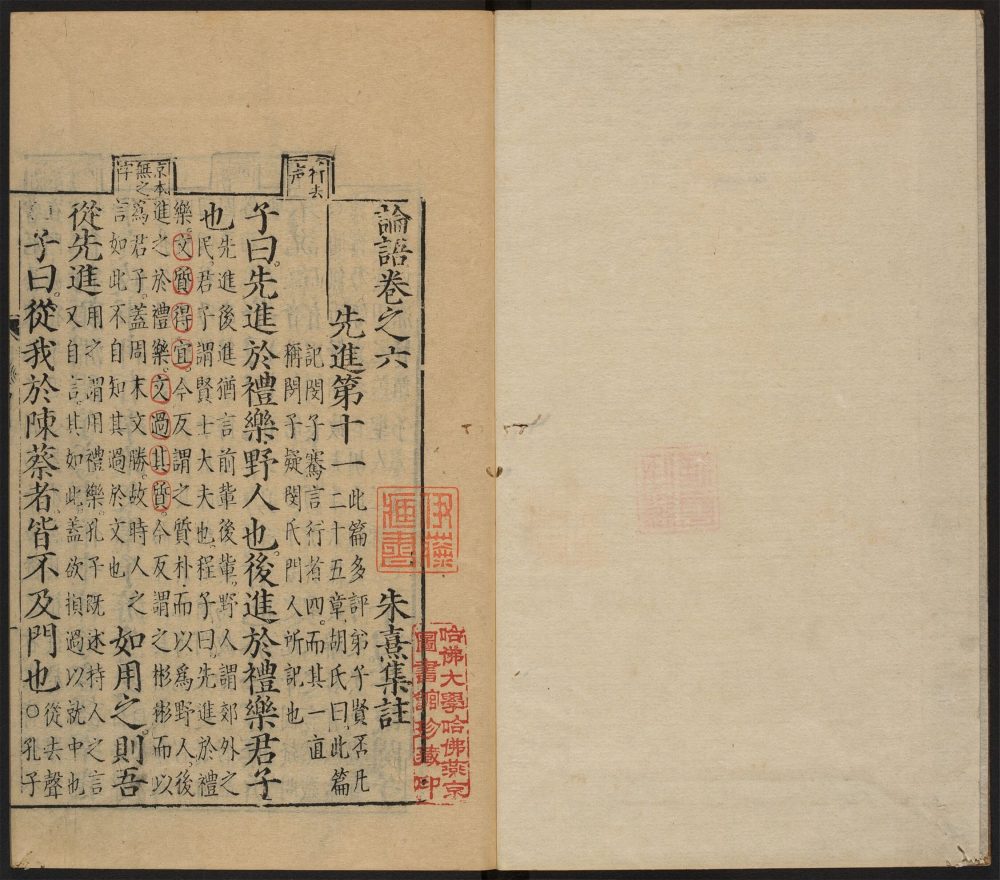 論語卷之六
朱熹集註
先進第十一
此篇多評弟子賢否凡
二十五章胡氏曰此篇
記閔子騫言行者四而其一直
稱閔子疑閔氏門人所記也
子曰。先進於禮樂。野人也。後進於禮樂。君子
也
先進後進猶言前輩後輩。野人謂郊外之
民。君子謂賢士大夫也。程子曰。先進於禮
樂。文質得宜。今反謂之質朴。而以爲野人。後
進之於禮樂。文過其質。今反謂之彬彬而以
爲君子。蓋周末文勝。故時人之
言如此不自知其過於文也
如用之。則吾
從先進
用之。謂用禮樂。孔子既述時人之言
又自言其如此。蓋欲損過以就中也
子曰。從我於陳蔡者。皆不及門也。○
從去聲
孔子
行去
声
京本
無之
字
伊藤
莊書
哈佛大學哈佛燕京
圖書館珍藏印